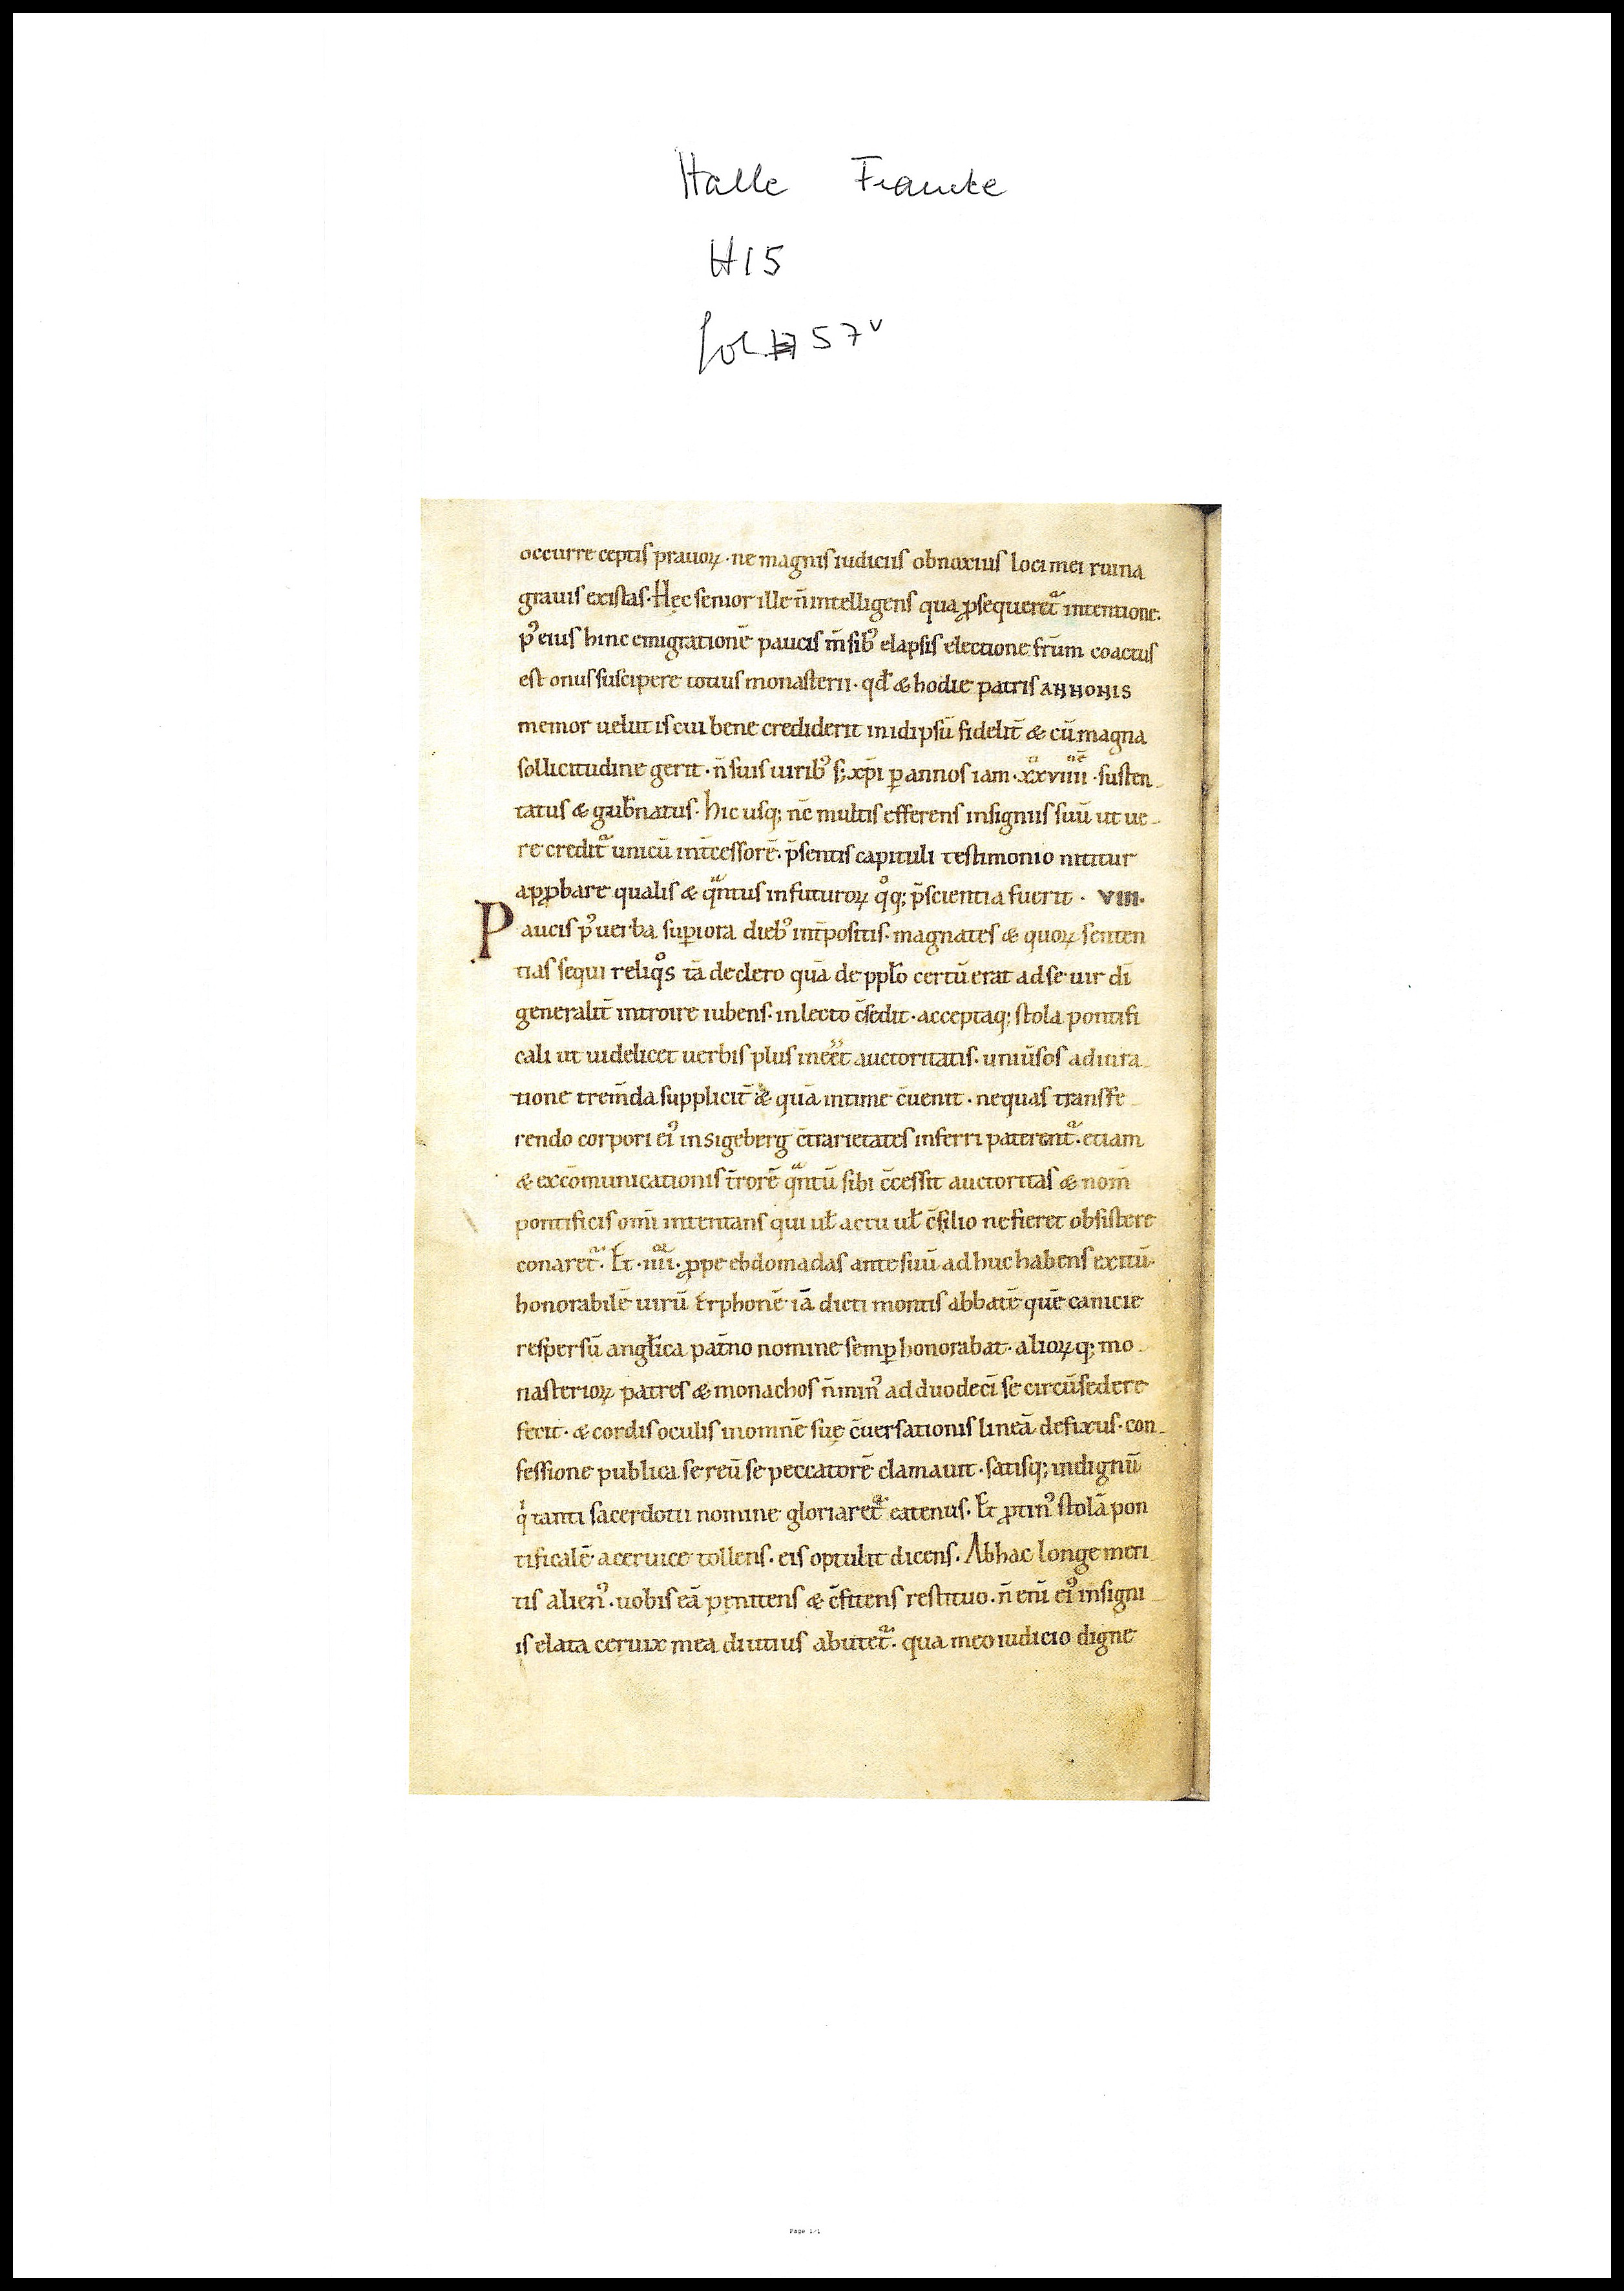 Halle Francke
H15
fol 57v
occurre ceptis prauoꝝ · ne magnis iudiciis obnoxius loci mei ruina
grauis existas · Hęc senior ille n̄ intelligens qua ꝓsequeret᷑ intentione ·
pꝰ eius hinc emigrationē paucis m̄sibꝰ elapsis electione fr̄um coactus
est onus suscipere totius monasterii · qd̄ & hodie patris ANNONIS
memor uelut is cui bene crediderit in idipsū fidelit̄ & cū magna
sollicitudine gerit · n̄ suis uiribꝰ s; xp̄i ꝑ annos iam · xxviiii · susten-
tatus & gub̄natus · Hic usq; nc̄ multis efferens insigniis suū ut ue-
re credit᷑ unicū int̄cessorē · p̄sentis capituli testimonio nititur
apꝓbare qualis & qͣntus in futuroꝝ qͦq; p̄scientia fuerit · VIII ·
Paucis pꝰ uerba suꝑiora diebꝰ int̄positis · magnates & quoꝝ senten
tias sequi reliqͦs tā de clero quā de pplo̅ certū erat ad se uir dī
generalit̄ introire iubens · in lecto c̄sedit · acceptaq; stola pontifi
cali ut uidelicet uerbis plus ineēt auctoritatis · uniūsos adiura-
tione trem̄da supplicit̄ & quā intime c̄uenit · nequas transfe-
rendo corpori eiꝰ in sigeberg c̄trarietates inferri paterent᷑ · etiam
& excōmunicationis t̄rorē qͣntū sibi c̄cessit auctoritas & nom̄
pontificis om̄i intentans qui ul̄ actu ul̄ c̄silio ne fieret obsistere
conaret᷑ · Et · iiii · ꝓpe ebdomadas ante suū ad huc habens exitū ·
honorabilē uirū Erphonē iā dicti montis abbatē quē canicie
respersū angl̄ica pat̄no nomine semꝑ honorabat · alioꝝq; mo-
nasterioꝝ patres & monachos n̄ minꝰ ad duodecī se circūsedere
fecit · & cordis oculis in omnē suę c̄uersationis lineā defixus · con-
fessione publica se reū se peccatorē clamauit · satisq; indignū
qͥ tanti sacerdotii nomine gloriaret᷑ eatenus · Et ꝓtinꝰ stolā pon
tificalē a ceruice tollens · eis optulit dicens · Ab hac longe meri-
tis alienꝰ · uobis eā pęnitens & c̄fitens restituo · n̄ eni̅ eiꝰ insigni-
is elata ceruix mea diutius abutet᷑ · qua meo iudicio digne
Page 1/1